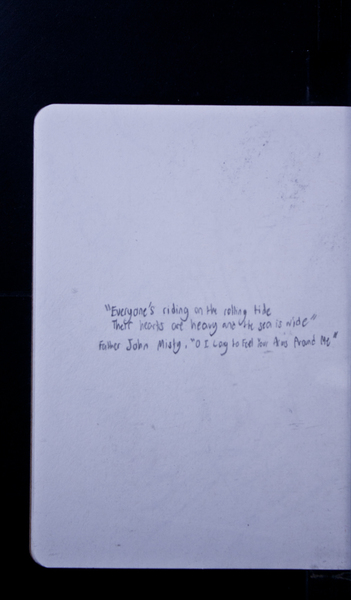 "Everyone's riding on the rolling tide
Their hearts are heavy and the sea is wide"
Father John Misty, "O I Long to Feel Your Arms Around Me"